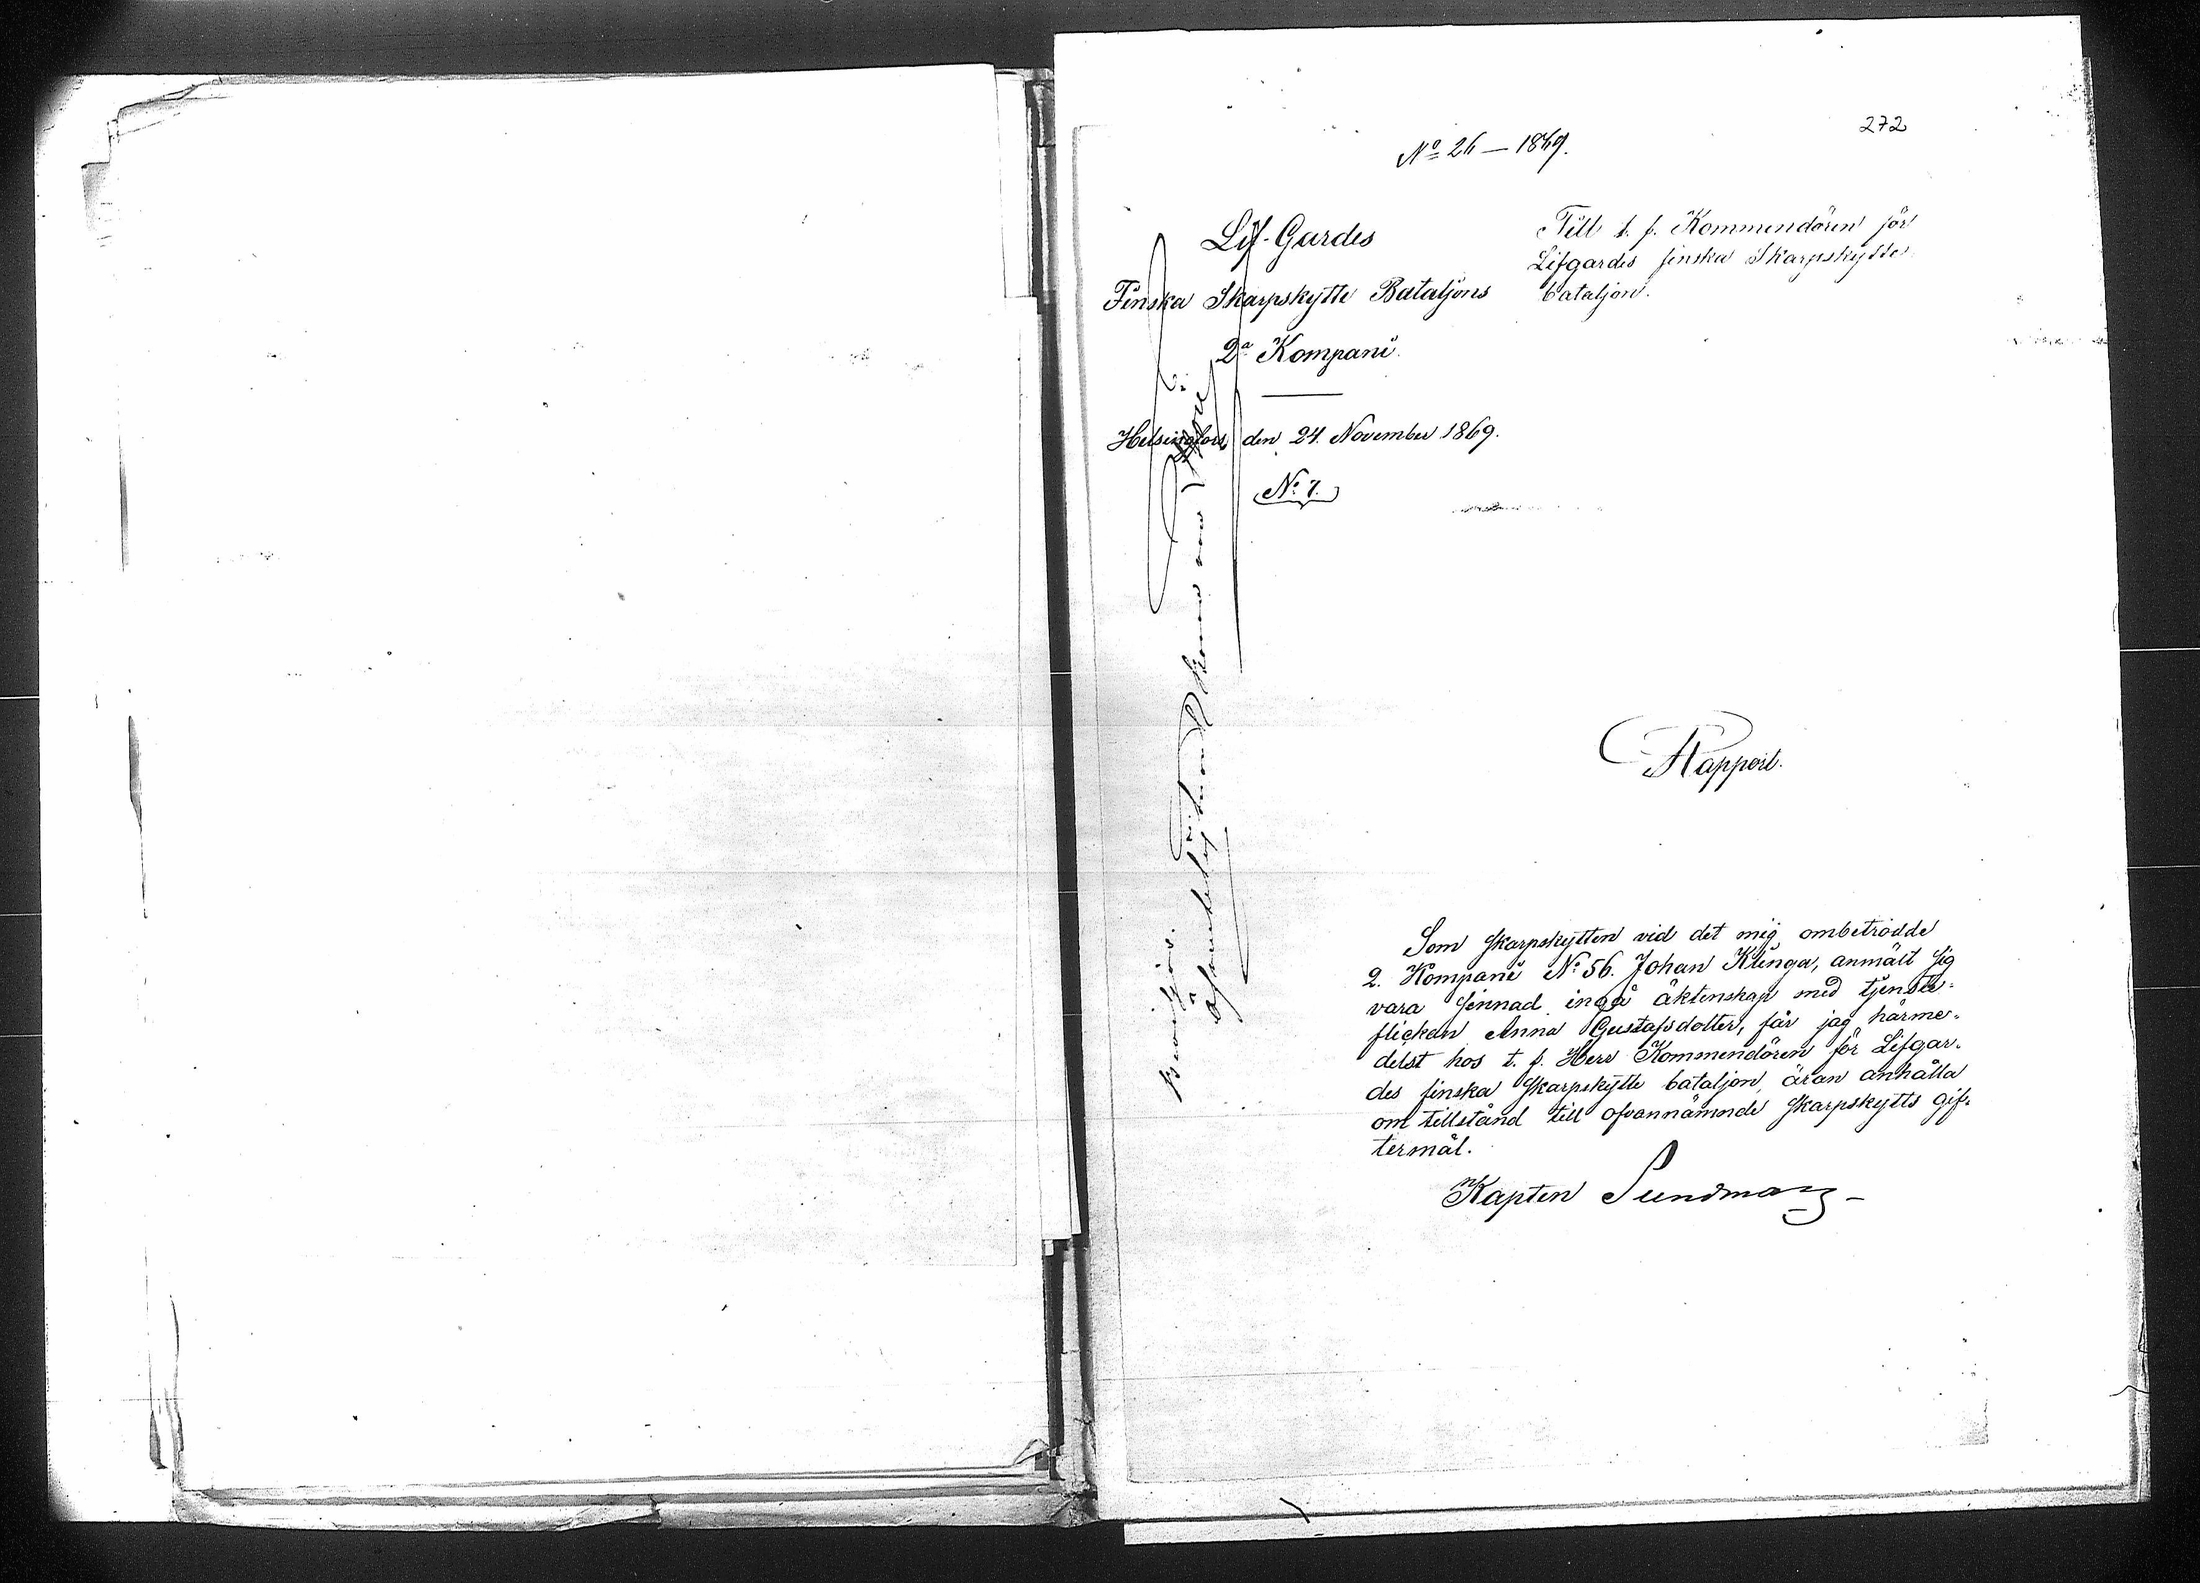 272
No 26 — 1869.
Lif-Gardes
Finska Skarpskytte Bataljons
2a Kompani.
Helsingfors, den 24. November 1869.
No 7.
Till t. f. Kommendören för
Lifgardes finska Skarpskytte
bataljon.
Rapport.
Som skarpskytten vid det mig ombetrodde
2. Kompani No 56. Johan Kunga, anmält sig
vara sinnad ingå äktenskap med tjenste-
flickan Anna Gustafsdotter, får jag härme-
delst hos t. f. Herr Kommendören för Lifgar-
des finska Skarpskytte bataljon, äran anhålla
om tillstånd till ofvannämnde skarpskytts gif-
termål.
Kapten Sundman
Beviljas.
Öfverstelöjtnant